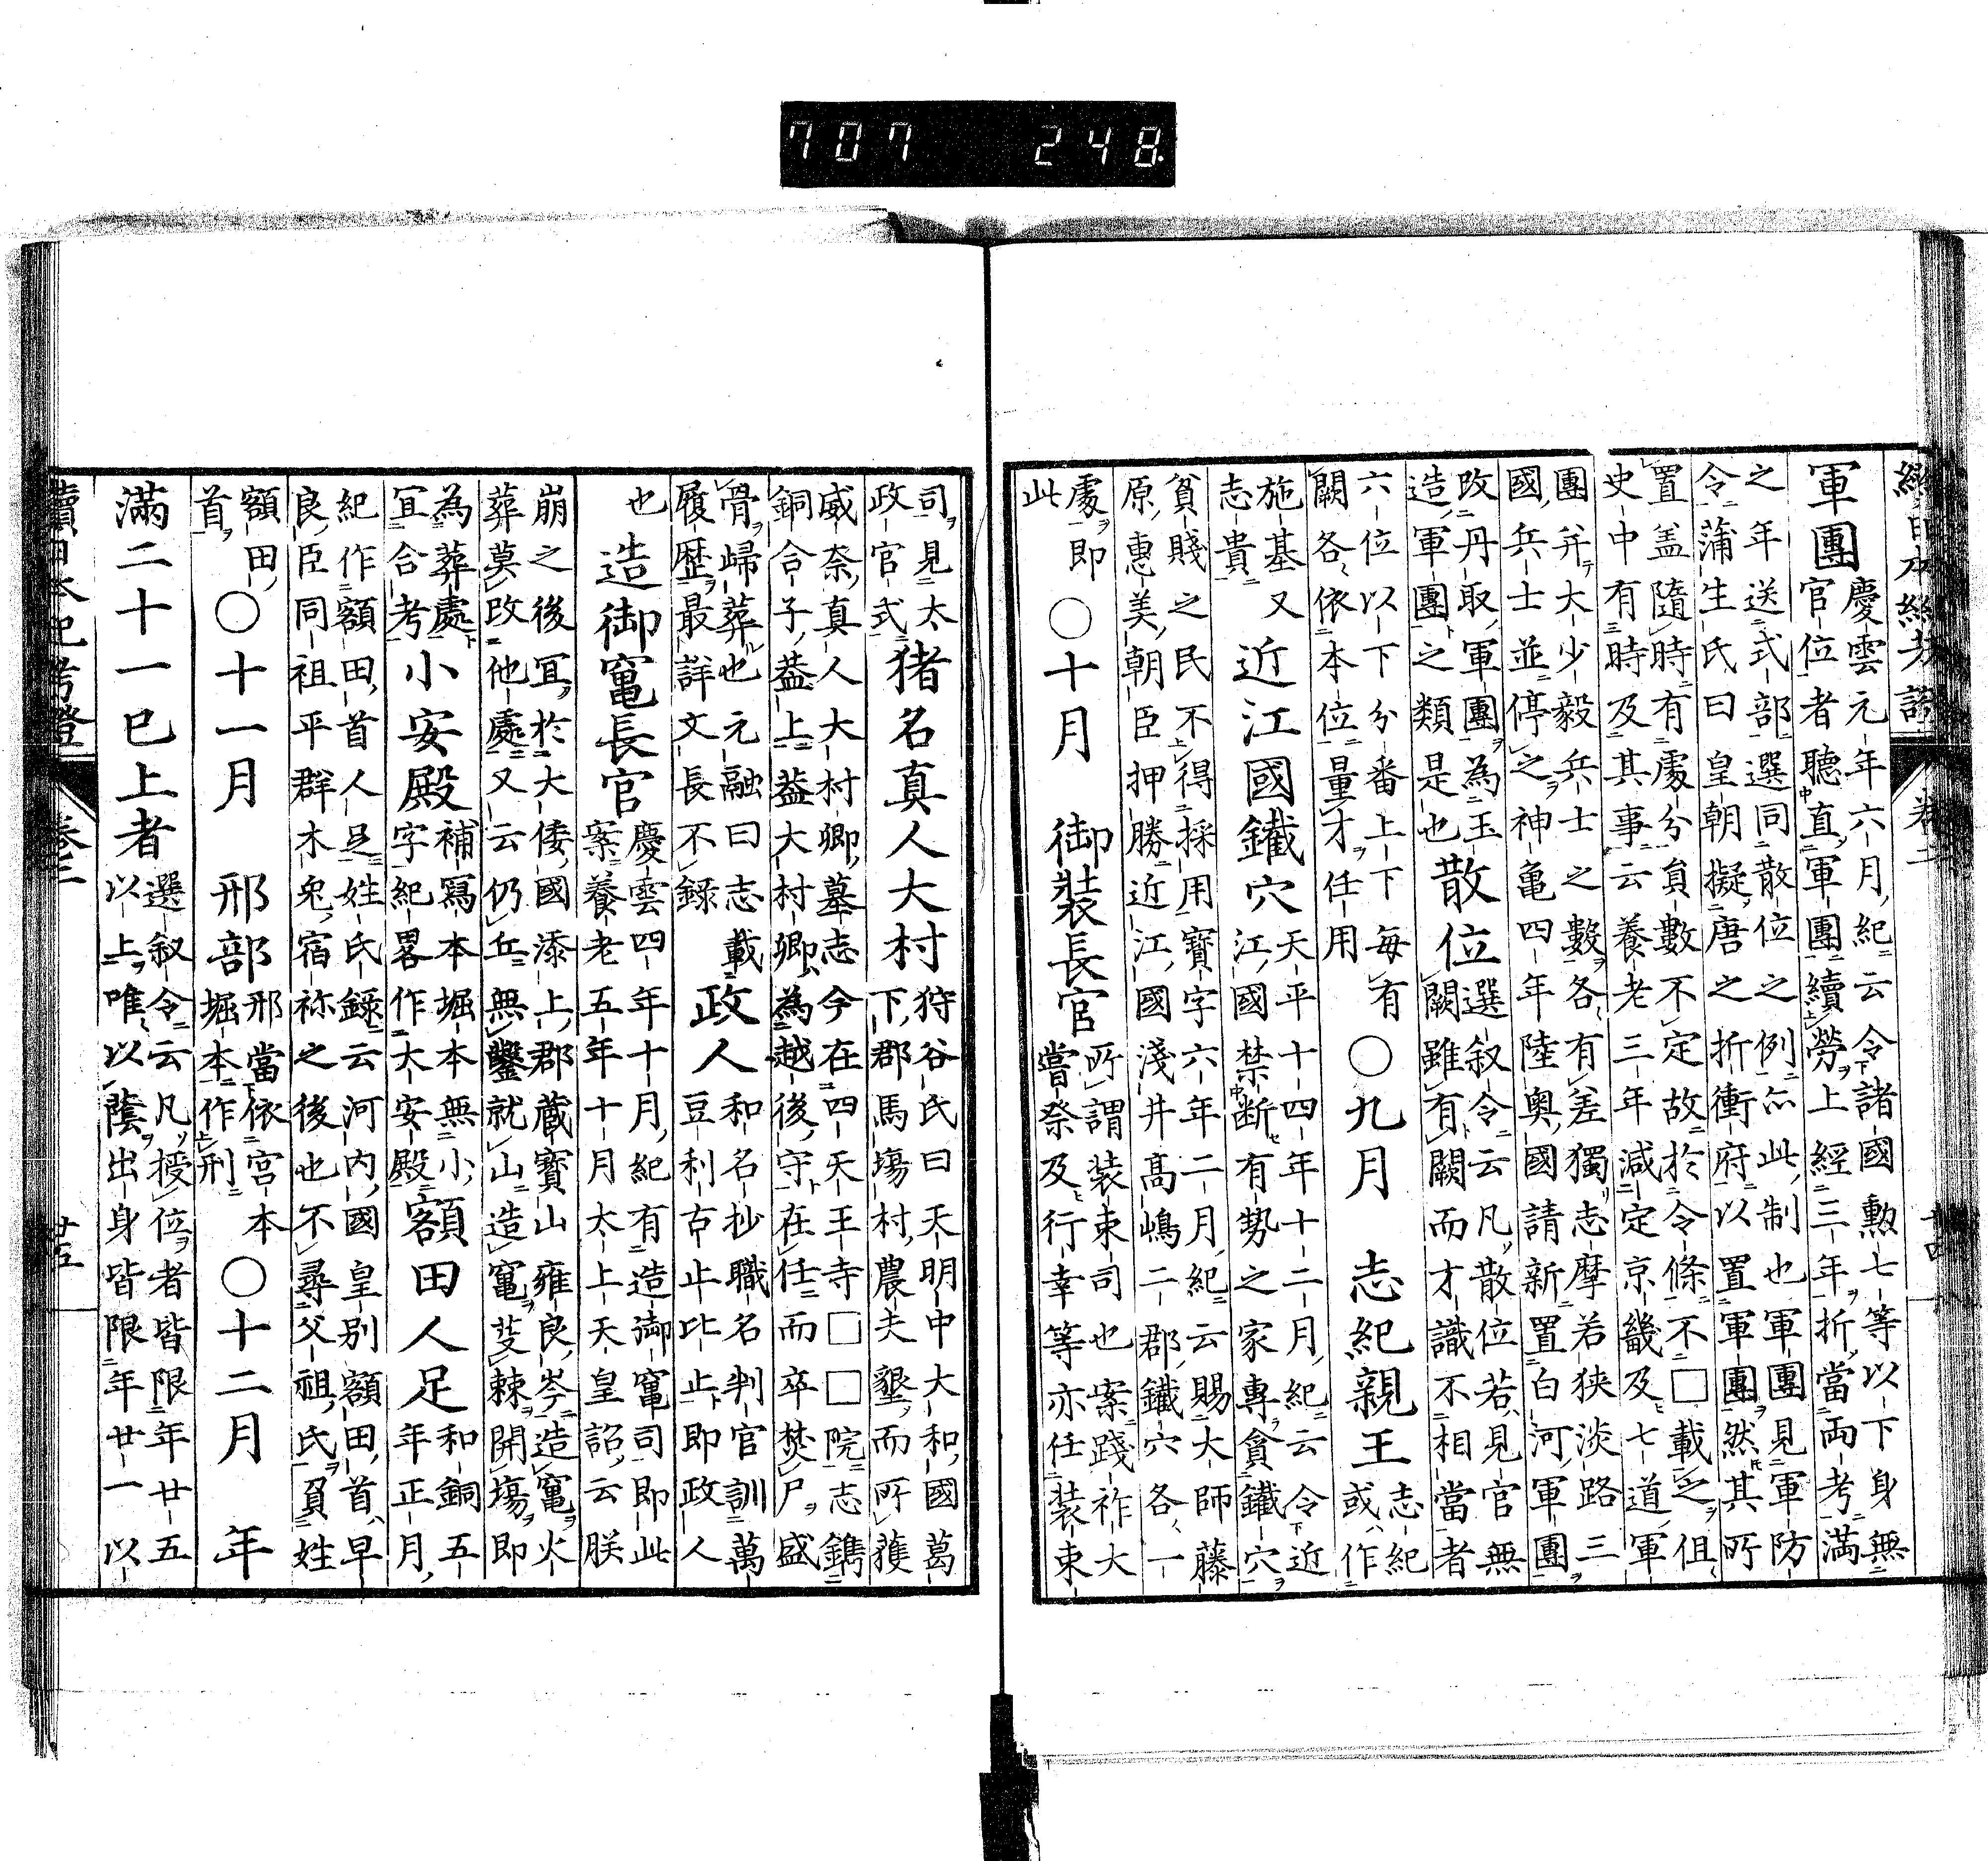 續日本紀考證 卷二
軍團
慶雲元年六月紀云令諸國勲七等以下身無
官位者聽直軍團續勞上經三年折當両考満
之年送式部選同散位之例亦此制也軍團見軍防
令蒲生氏曰皇朝擬唐之折衝府以置軍團然其所
置盖隨時有處分員數不定故於令條不□載之但
史中有時及其事云養老三年減定京畿及七道軍
團并大少毅兵士之數各有差獨志摩若狭淡路三
國兵士並停之神亀四年陸奥國請新置白河軍團
改丹取軍團為玉
造軍團之類是也
散位
選叙令云凡散位若見官無
闕雖有闕而才識不相當者
六位以下分番上下毎有
闕各依本位量才任用
〇九月 志紀親王
志紀
或作
施基又
志貴
近江國鐵穴
天平十四年十二月紀云令近
江國禁断有勢之家專貪鐵穴
貧賤之民不得採用寶字六年二月紀云賜大師藤
原惠美朝臣押勝近江國淺井髙嶋二郡鐵穴各一
處即
此
〇十月 御装長官
所謂装束司也案踐祚大
嘗祭及行幸等亦任装束
司見太
政官式
猪名真人大村
狩谷氏曰天明中大和國葛
下郡馬塲村農夫墾而所獲
威奈真人大村卿墓志今在四天王寺□□院志鐫
銅合子葢上葢大村卿為越後守在任而卒焚尸盛
骨歸葬也元融曰志載
履歴最詳文長不録
政人
和名抄職名判官訓萬
豆利古止比止即政人
也
造御竃長官
慶雲四年十月紀有造御竃司即此
案養老五年十月太上天皇詔云朕
崩之後冝於大倭國添上郡蔵寳山雍良岑造竃火
葬莫改他處又云仍丘無鑿就山造竃芟棘開塲即
為葬處
冝合考
小安殿
補寫本堀本無小
字紀畧作大安殿
額田人足
和銅五
年正月
紀作額田首人足姓氏録云河内國皇別額田首早
良臣同祖平群木兎宿祢之後也不尋父祖氏負姓
額田
首
〇十一月 邢部
邢當依宮本
堀本作刑
〇十二月 年
滿二十一已上者
選叙令云凡授位者皆限年廿五
以上唯以蔭出身皆限年廿一以
續日本紀考證 卷二 廿五
707 248